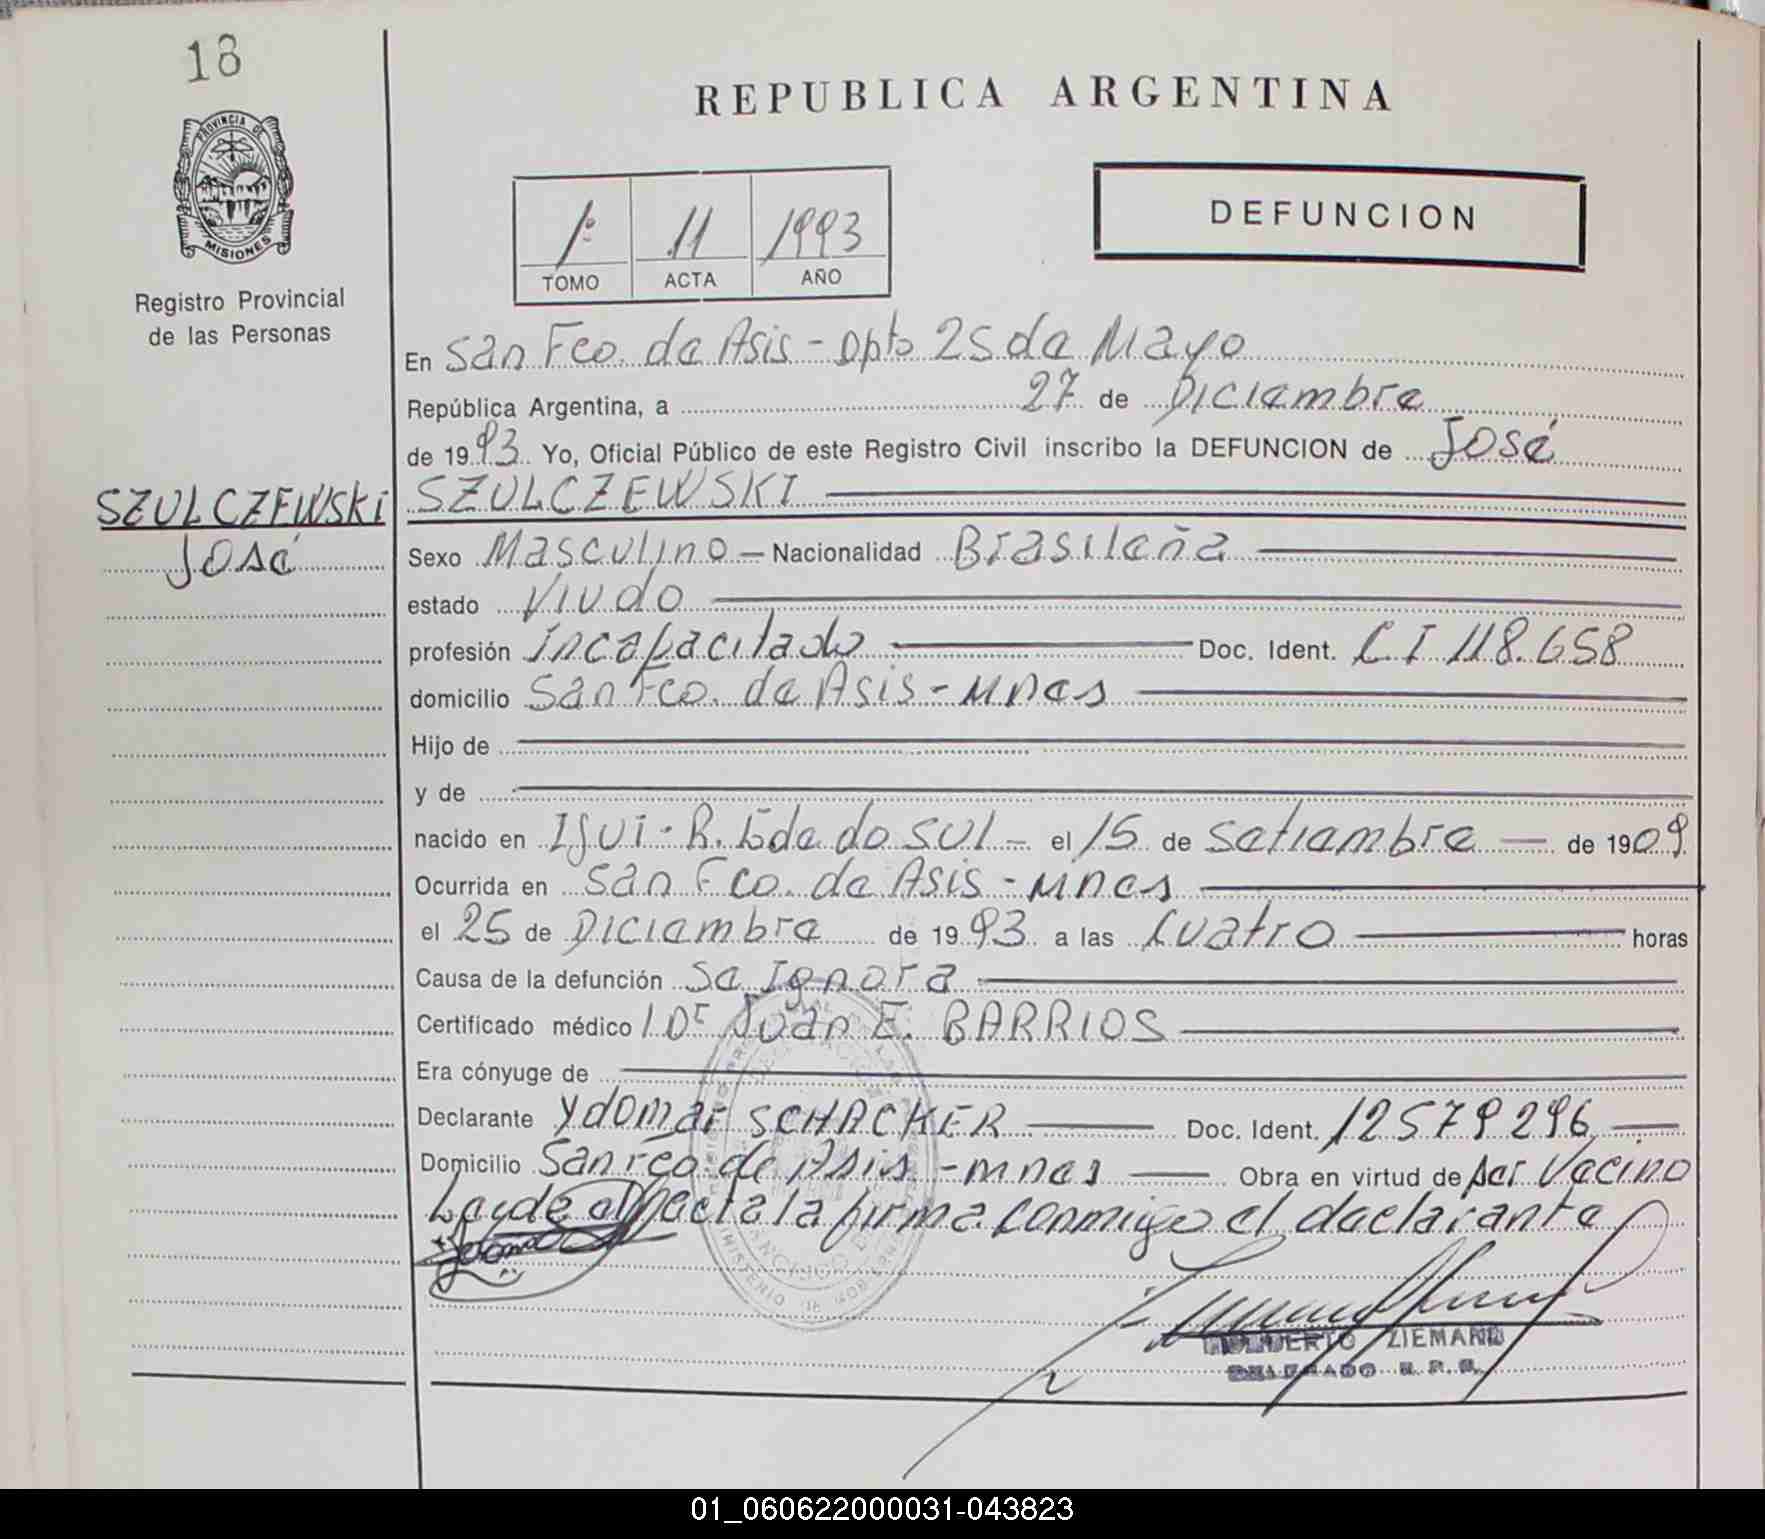 18
PROVINCIA DE
MISIONES
Registro Provincial
de las Personas
REPUBLICA ARGENTINA
1º 11 1993
TOMO ACTA AÑO
DEFUNCION
En San Fco. de Asis - Dpto 25 de Mayo
República Argentina, a 27 de Diciembre
de 1993 Yo, Oficial Público de este Registro Civil inscribo la DEFUNCION de José
SZULCZEWSKI
SZULCZEWSKi
José
Sexo Masculino - Nacionalidad Brasileña
estado Viudo
profesión incapacitado Doc. Ident. C I 118.658
domicilio San Fco. de Asis - Mnes
Hijo de
y de
nacido en Ijui - R. Gde do sul - el 15 de Setiembre de 1909
Ocurrida en San Fco. de Asis - Mnes
el 25 de Diciembre de 1993 a las Cuatro horas
Causa de la defunción Se Ignora
Certificado médico Dr Juan E. BARRIOS
Era cónyuge de
Declarante Ydomar SCHACKER Doc. Ident. 12579296
Domicilio San Fco. de Asis - Mnes Obra en virtud de ser Vecino
Leyde el acta la firma conmigo el declarante
ZIEMANN
DELEGADO R. P. P.
01_060622000031-043823